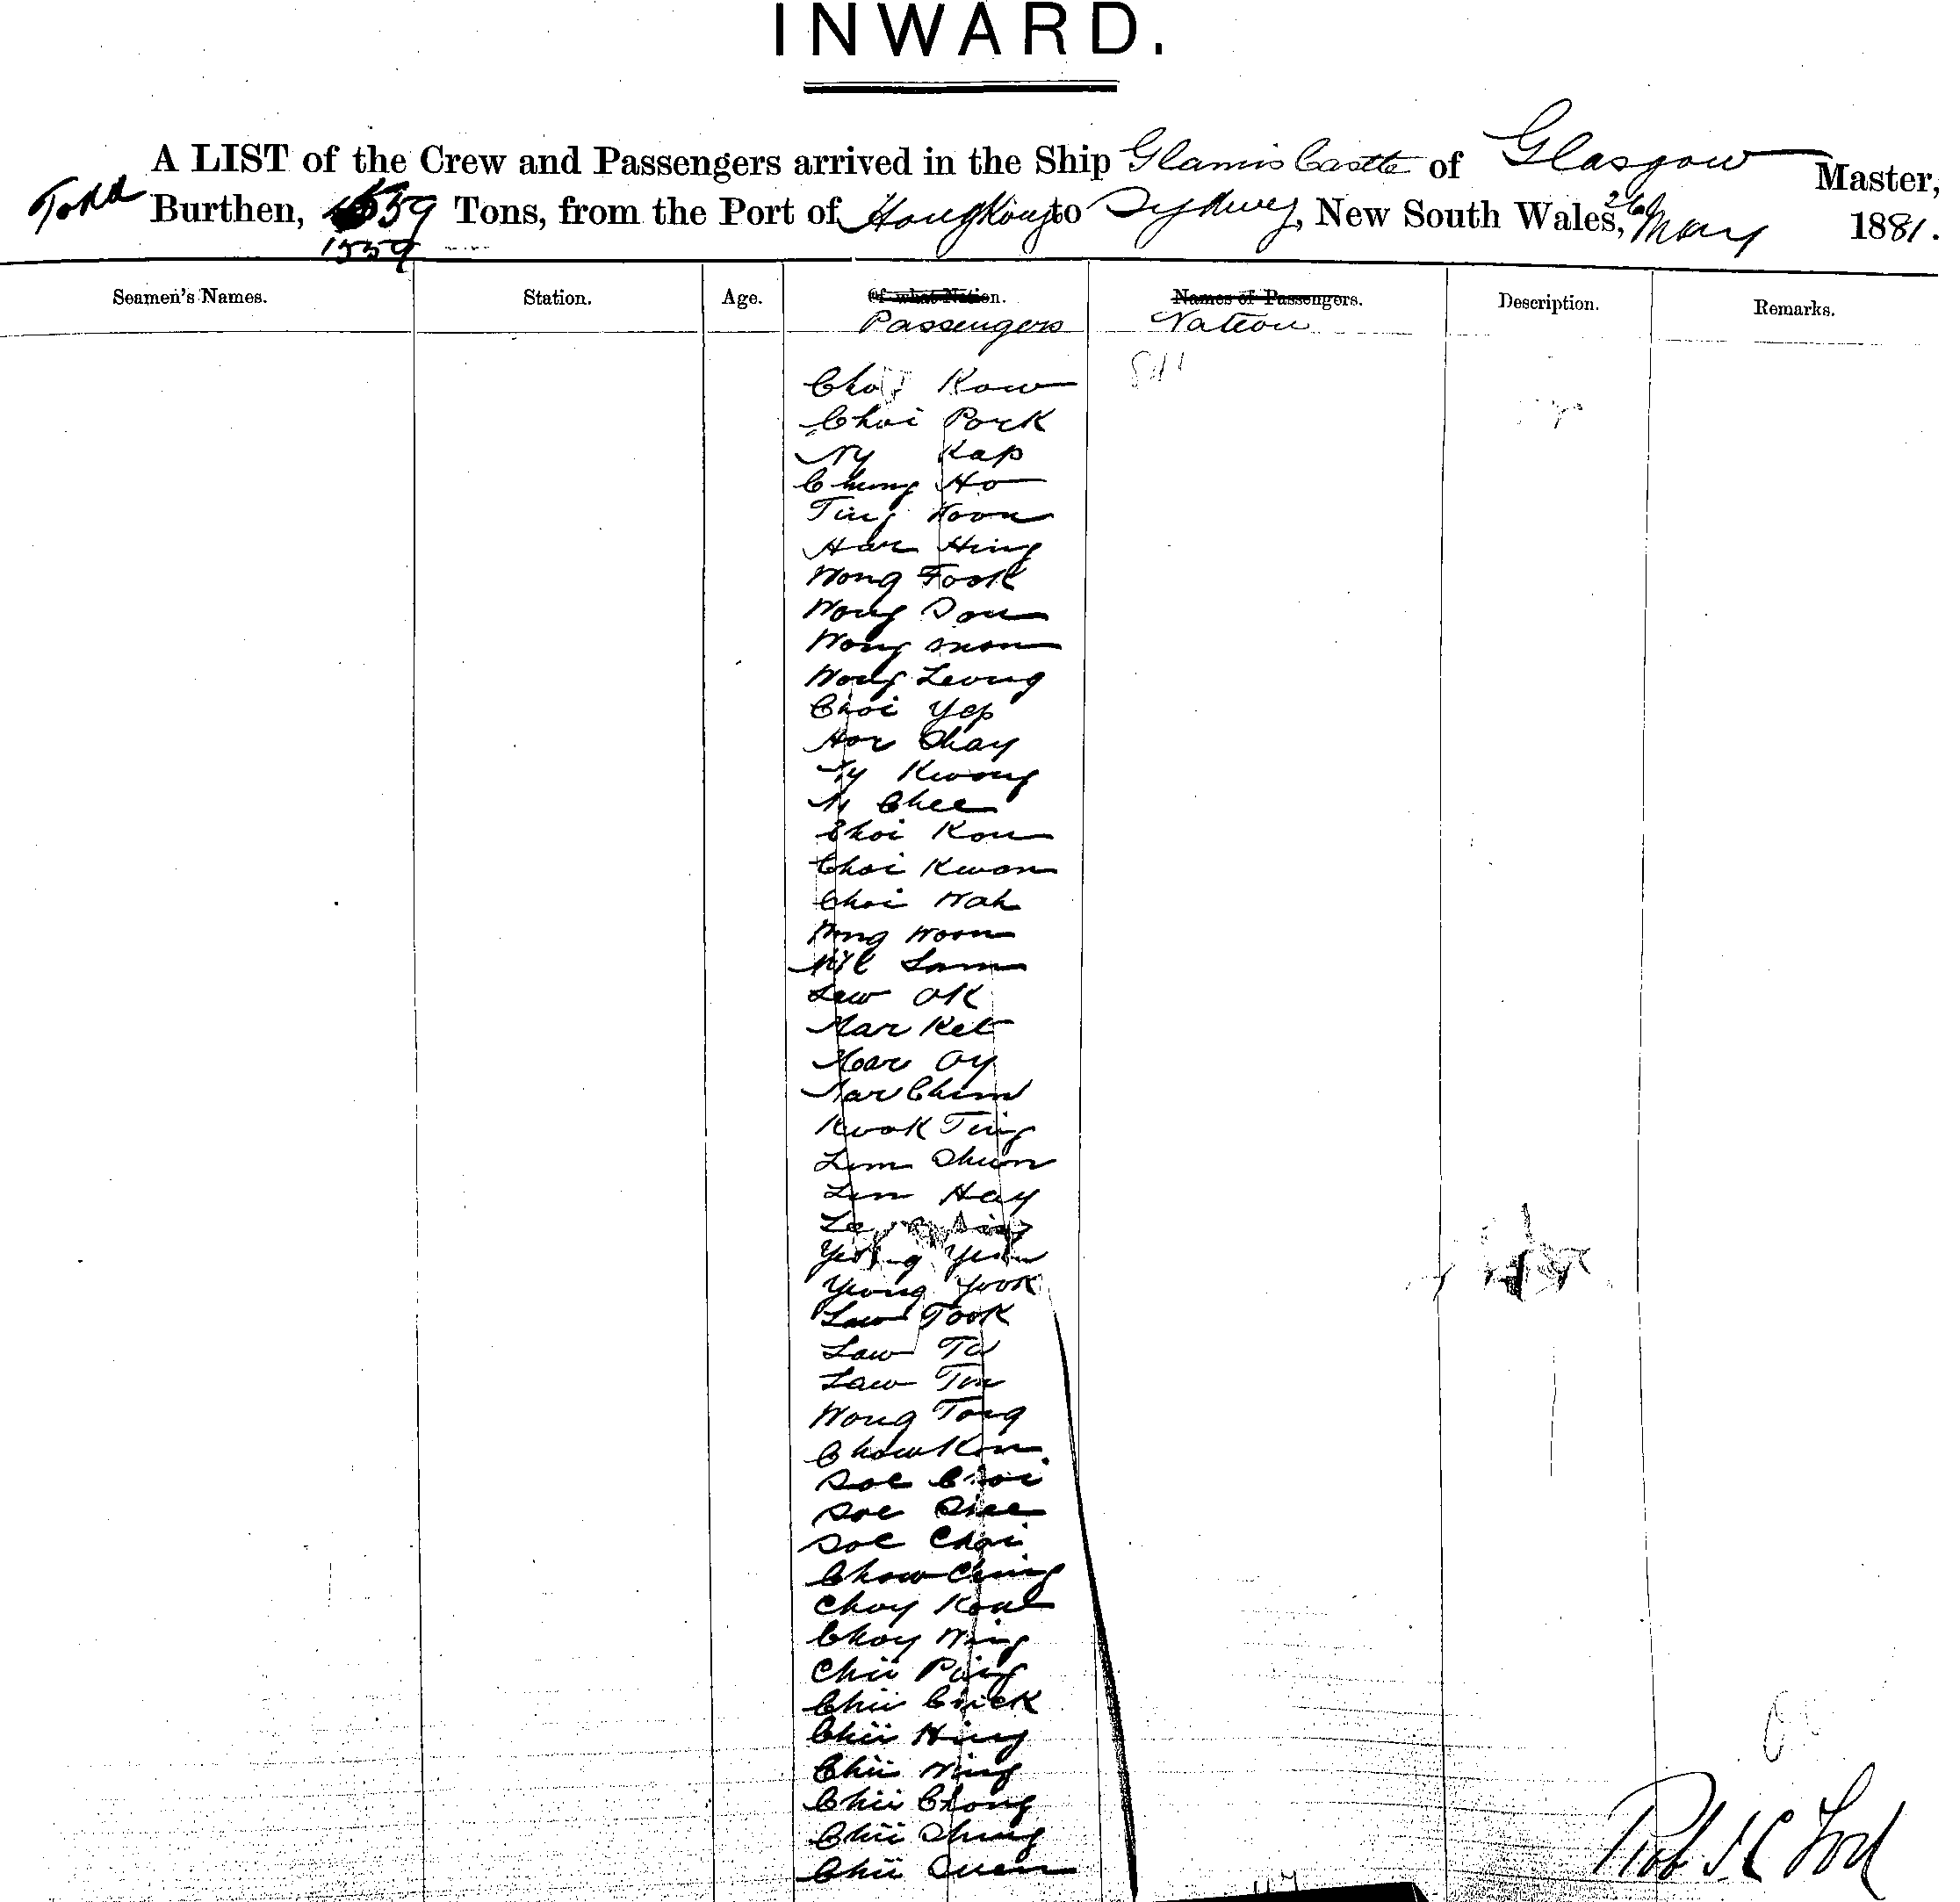 INWARD.
A LIST of the Crew and Passengers arrived in the Ship Glamis Castle of Glasgow Master,
Todd Burthen, 1559 Tons, from the Port of Hong Kong to Sydney, New South Wales, 26 May 1881.
1559
Seamen's Names. Station. Age. Of what Nation. Names of Passengers. Description. Remarks.
Passengers Nation
Kow
Choi Pock
Ny Kap
Chung Ho
Ting Koon
Har Hing
Wong Fook
Wong Son
Wong Mon
Wong Leong
Choi Yep
Hor Shay
Ny Kwong
Chee
Choi Kon
Choi Kwan
Choi Wah
Wong Woon
Sam
Law OK
Mar Ket
Mar Oy
Mar Chim
Kwok Ting
Lim Shun
Lim Hay
Yeong
Yeong Yook
Law Took
Law
Law Tin
Wong Tong
Chow Kin
Soe Choi
Soe Shee
Soe Choi
Chow Ching
Choy Kow
Choy Wing
Chii Ping
Chii Chick
Chii Hing
Chii Ming
Chii Chong
Chii Shing
Chii
Rob